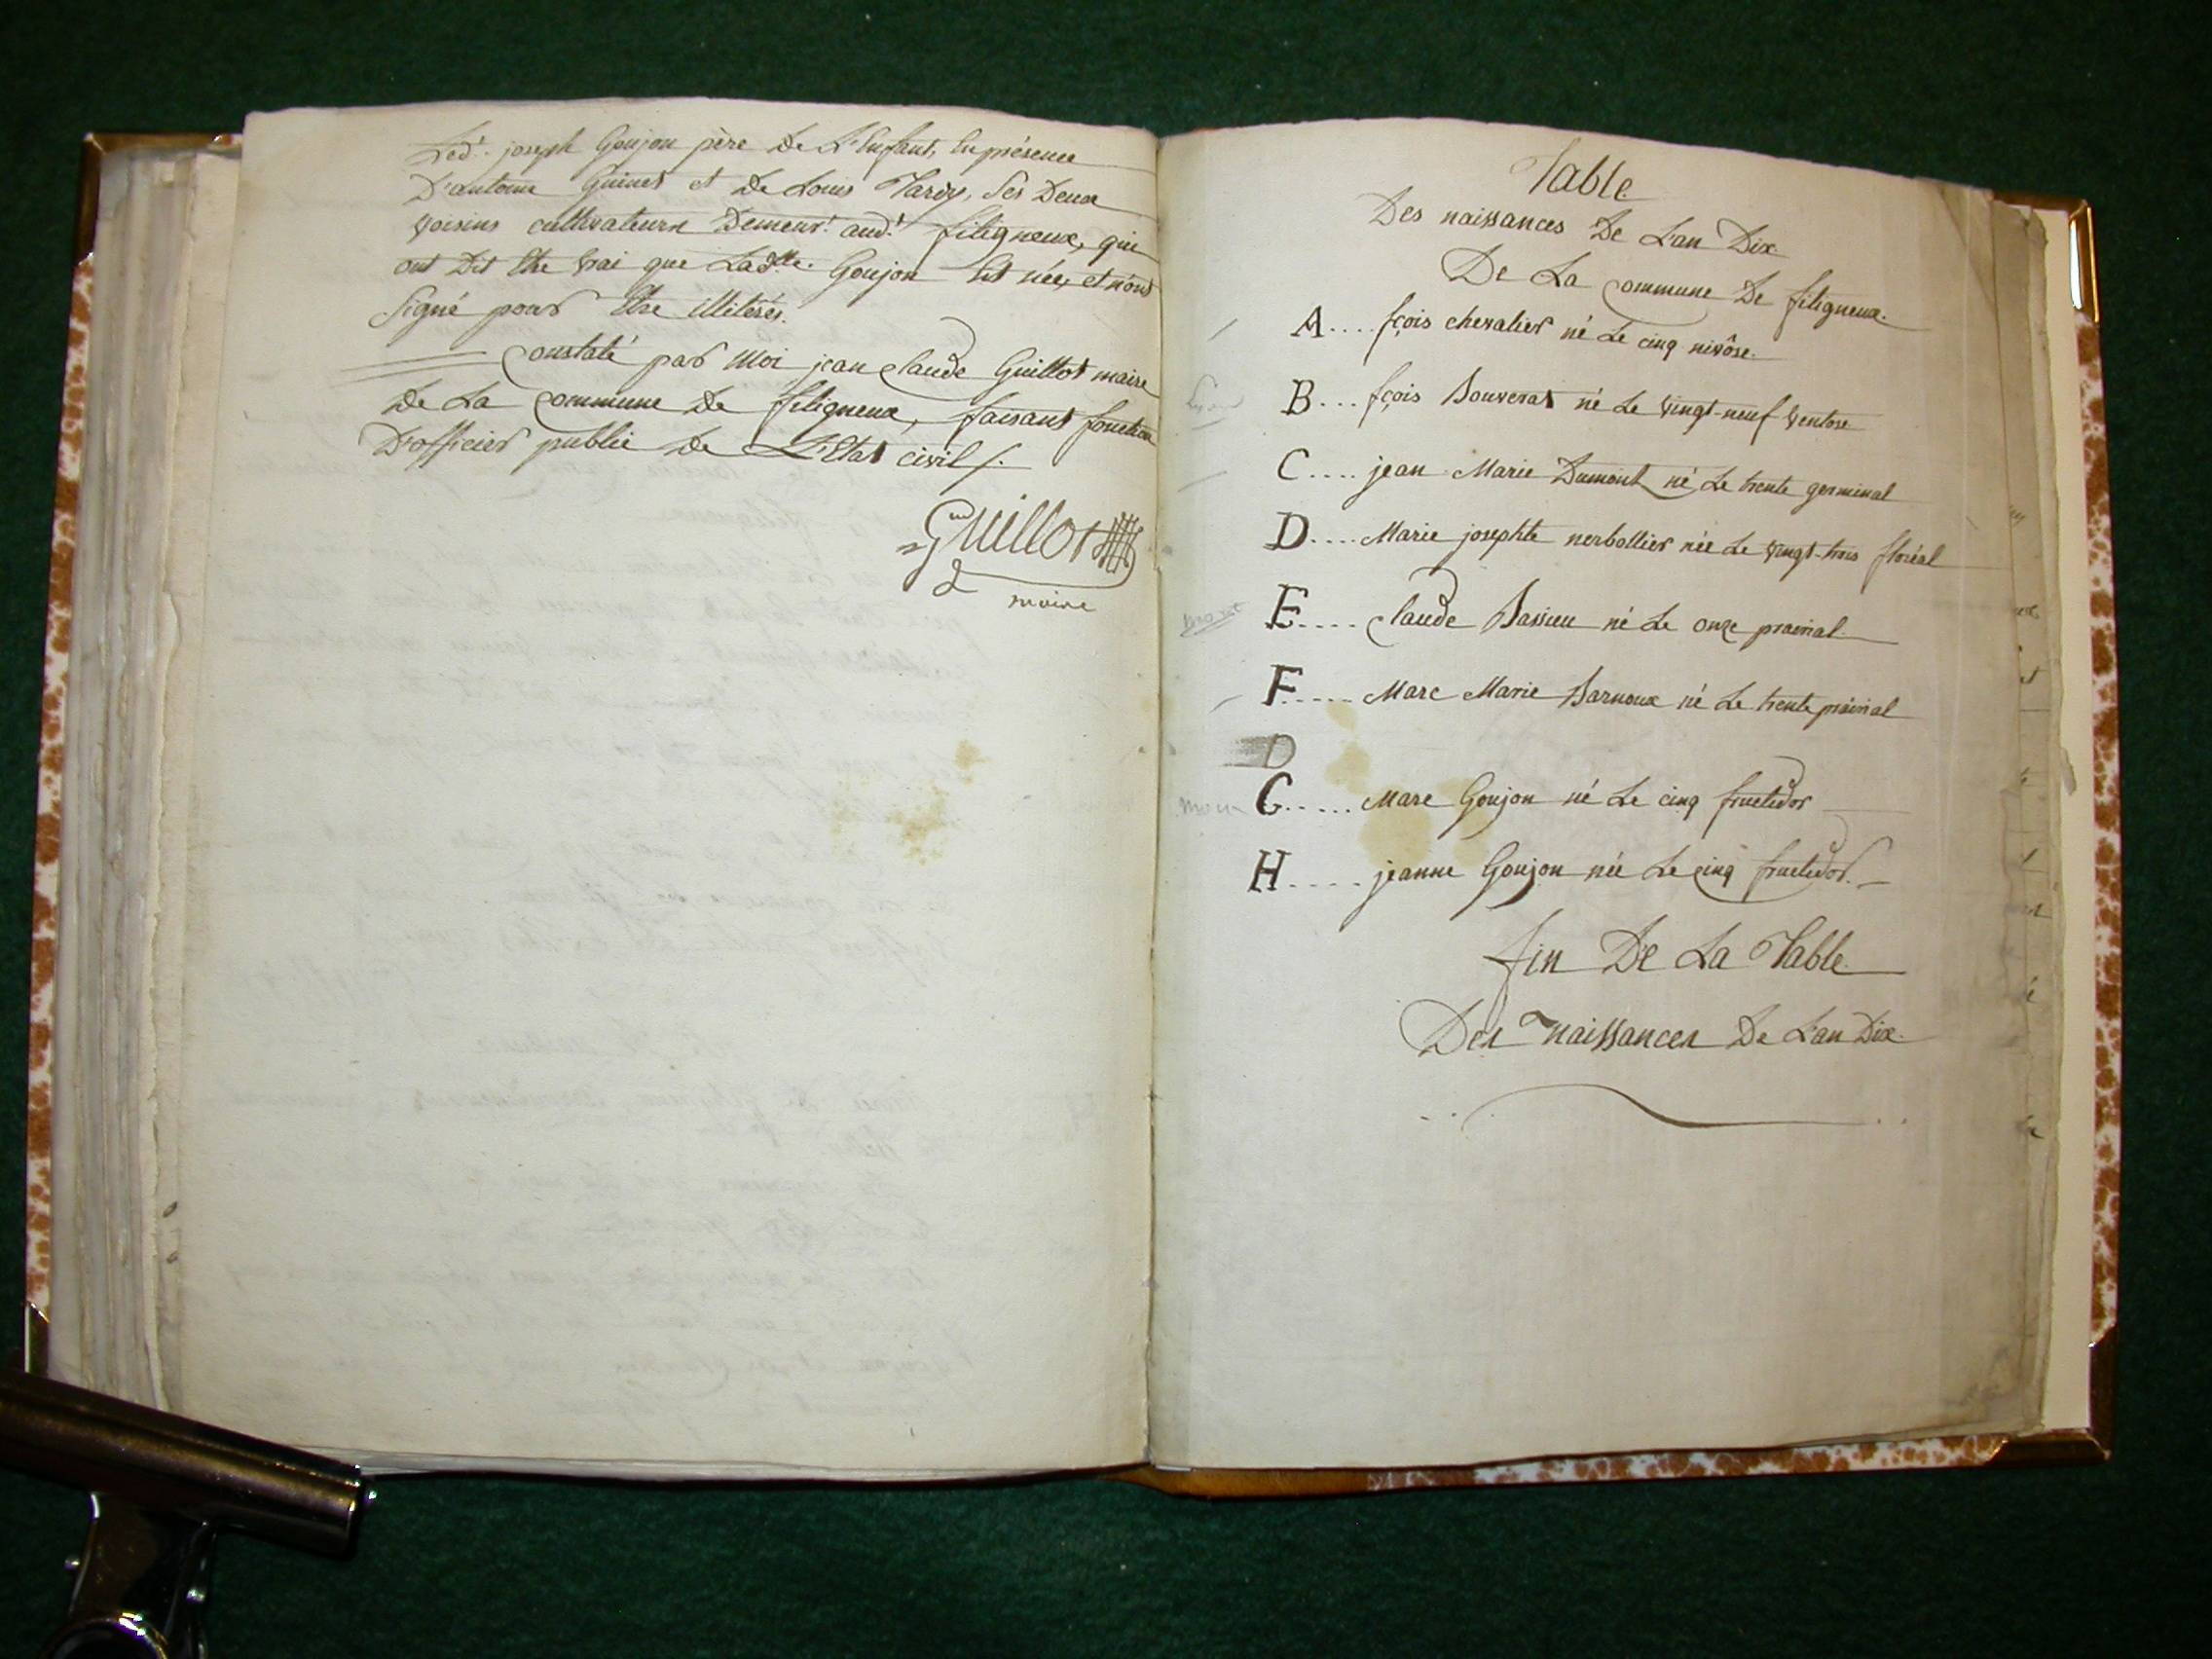 Led.t joseph Goujon père De L'Enfant, En présence
D'antoine Guinet et De Louis Tardy, Ses Deux
voisins cultivateurs Demeur.t aud.t filigneux, qui
ont Dit Etre vrai que Lad.tte Goujon Est née, et n'ont
Signé pour Etre illitérés.
Constaté par Moi jean Claude Guillot maire
De La Commune De filigneux, faisant fonction
D'officier public De L'Etat civil /.
Guillot
maire
Table
Des naissances De L'an Dix
De La Commune De filigneux.
A.... fçois chevalier né Le cinq nivôse.
B... fçois Bouverat né Le vingt-neuf Ventose
C.... jean Marie Dumont né Le trente germinal
D.... Marie josephte nerbollier née Le vingt-trois floréal
E.... Claude Bassieu né Le onze prairial
F.... Marc Marie Barnoux né Le trente prairial
D
G..... Marc Goujon né Le cinq fructidor
H..... jeanne Goujon née Le cinq fructidor.
fin De La Table
Des naissances De L'an Dix.